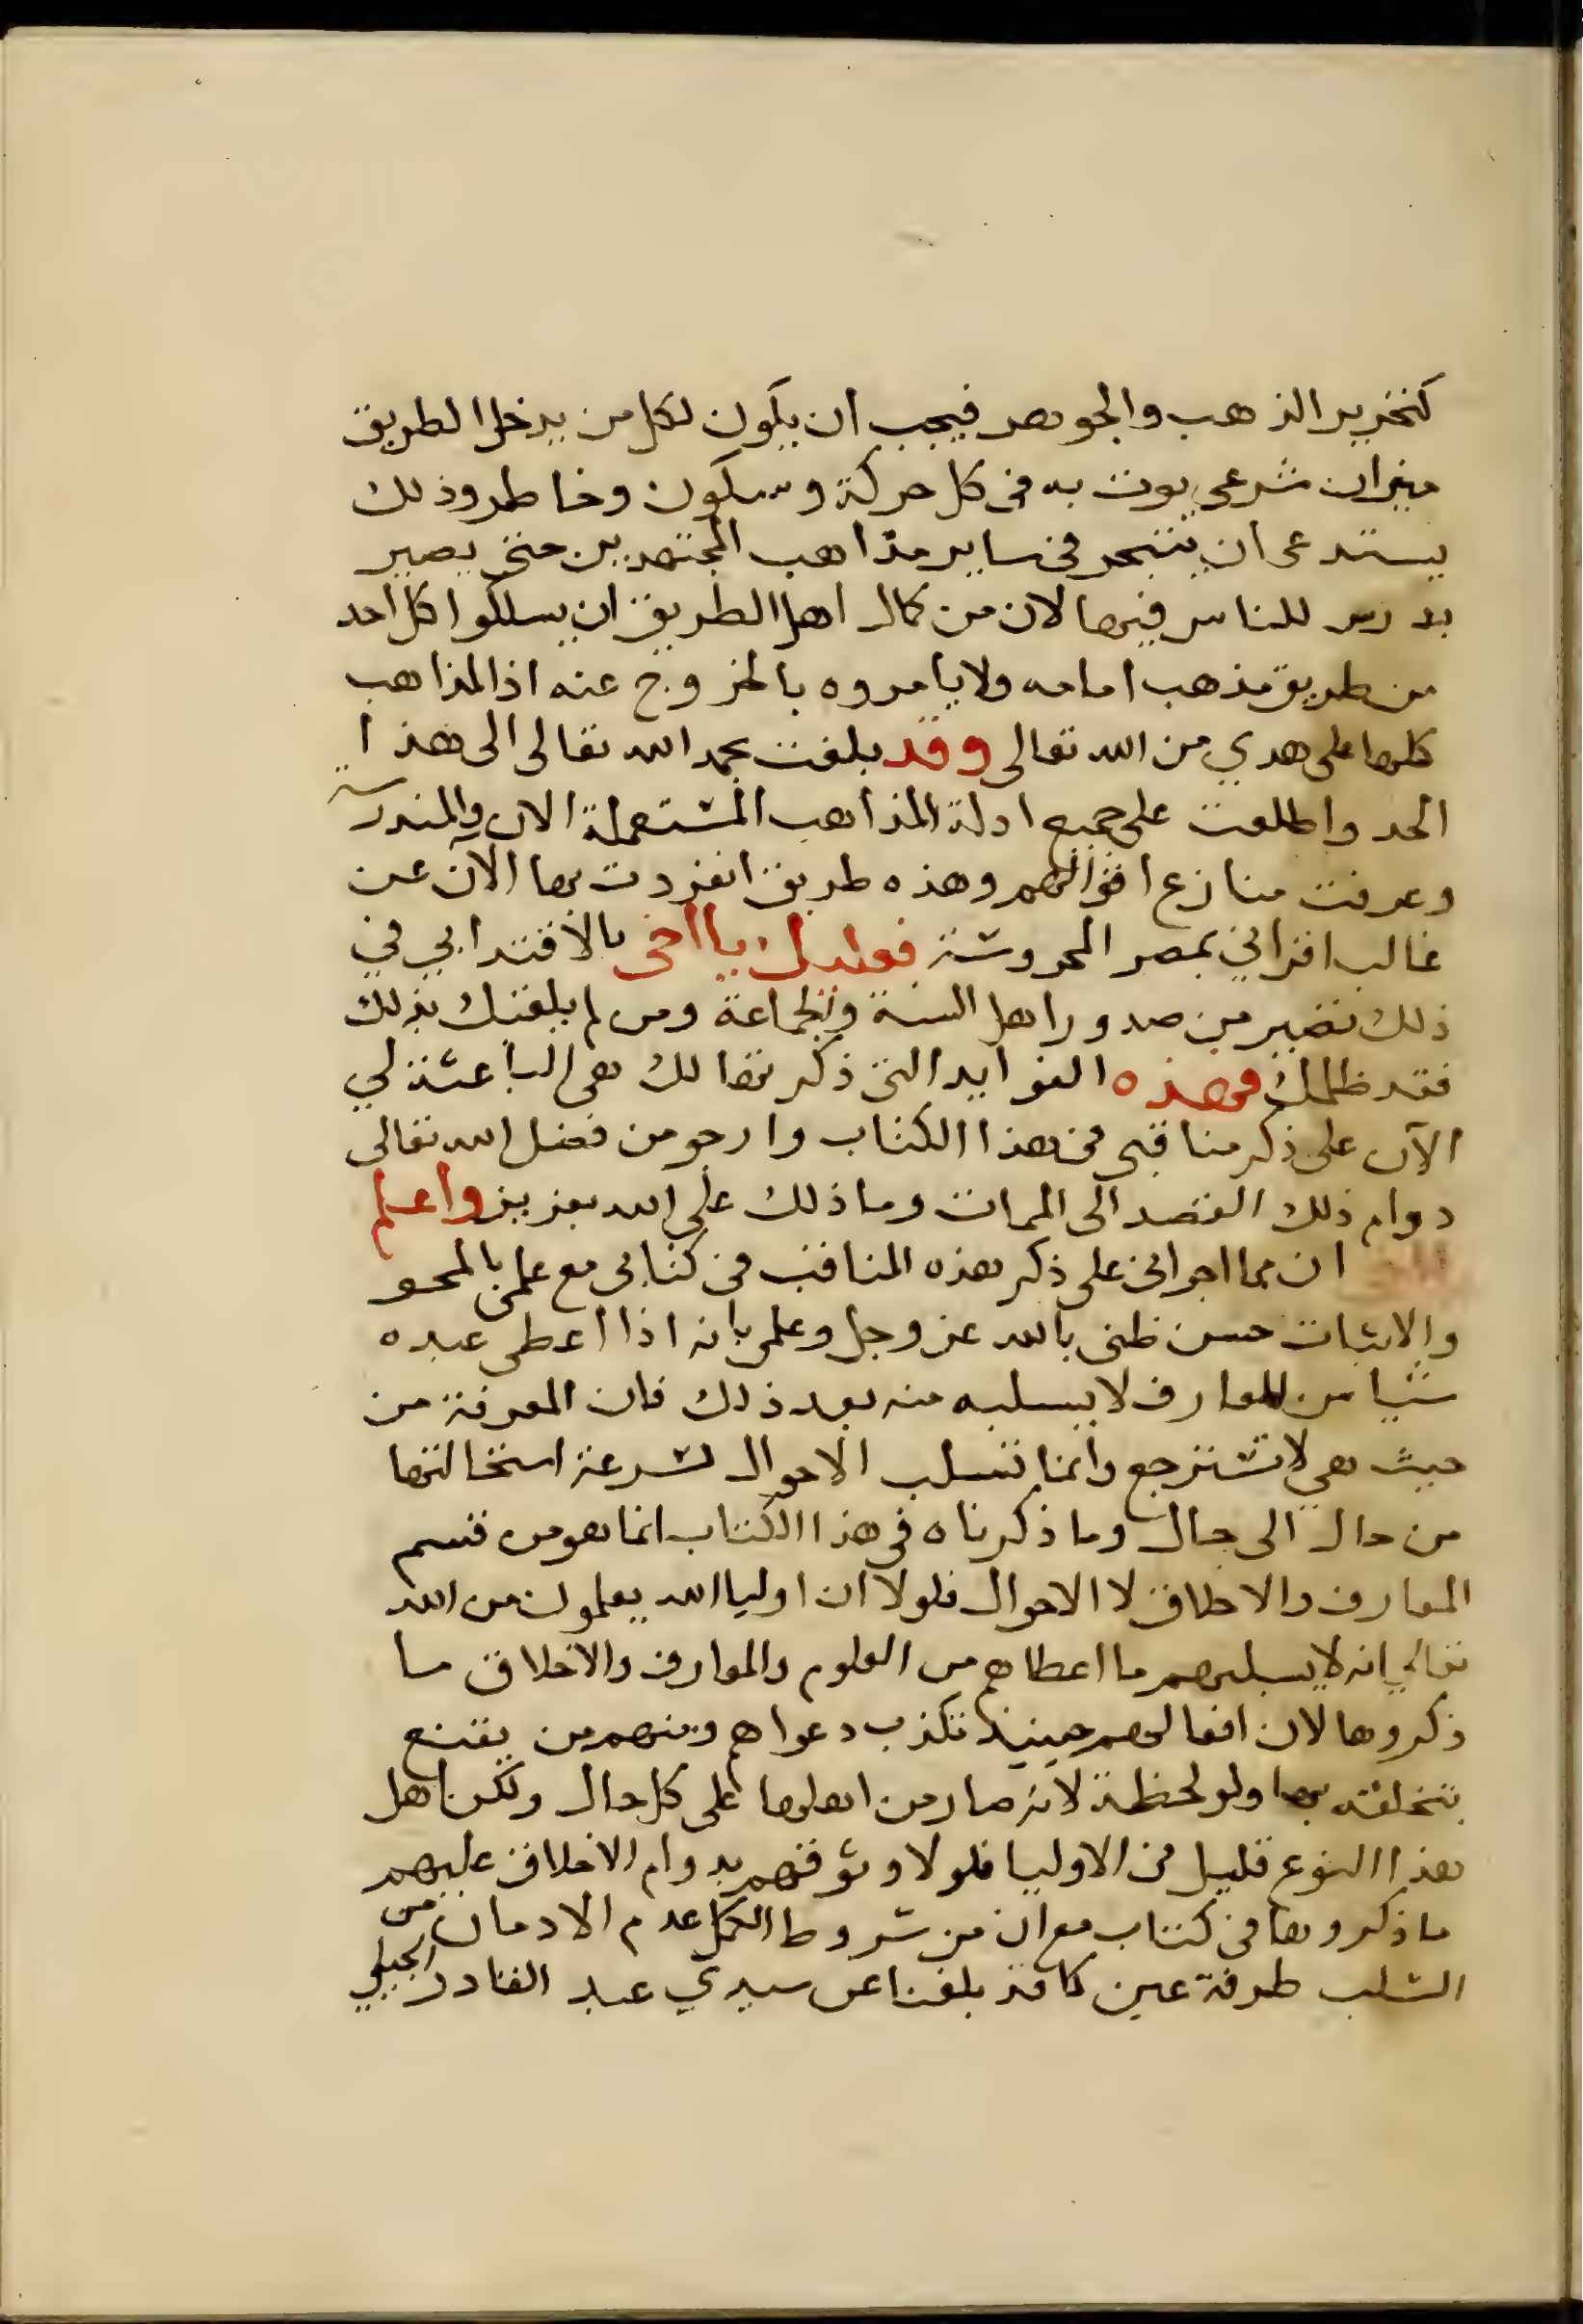 كتحرير الذهب والجوهر فيجب ان يكون لكل من يدخل الطريق
ميزان شرعي يوزن به في كل حركة وسكون وخاطر وذلك
يستدعى ان يتبحر في ساير مذاهب المجتهدين حتى يصير
يدرس للناس فيها لان من كمال اهل الطريق ان يسلكوا كل احد
من طريق مذهب امامه ولا يامروه بالخروج عنه اذ المذاهب
كلها على هدي من الله تعالى وقد بلغت بحمد الله تعالى الى هذا
الحد واطلعت على جميع ادلة المذاهب المستعملة الان والمندرسة
وعرفت منازع اقوالهم وهذه طريق انفردت بها الآن عن
غالب اقراني بمصر المحروسة فعليك يا اخي بالاقتدا بي في
ذلك تصير من صدور اهل السنة والجماعة ومن لم يلقنك بذلك
فقد ظلمك فهذه الفوايد التي ذكرتها لك هي الباعثة لي
الآن على ذكر مناقبي في هذا الكتاب وارجو من فضل الله تعالى
دوام ذلك القصد الى الممات وما ذلك على الله بعزيز واعلم
ان مما اجراني على ذكر هذه المناقب في كتابي مع علمي بالمحو
والاثبات حسن ظني بالله عز وجل وعلمي بانه اذا اعطى عبده
شيا من المعارف لا يسلبه منه بعد ذلك فان المعرفة من
حيث هي لا تسترجع وانما تسلب الاحوال لسرعة استحالتها
من حال الى حال وما ذكرناه في هذا الكتاب انما هو من قسم
المعارف والاخلاق لا الاحوال فلولا ان اوليا الله يعلمون من الله
تعالى انه لا يسلبهم ما اعطاهم من العلوم والمعارف والاخلاق ما
ذكروها لان افعالهم حينيذ تكذب دعواهم ومنهم من يقنع
بتخلقه بها ولو لحظة لانه صار من اهلها على كل حال ولكن اهل
هذا النوع قليل في الاوليا فلولا وثوقهم بدوام الاخلاق عليهم
ما ذكروها في كتاب مع ان من شروط الكمل عدم الادمان من
السلب طرفة عين كما قد بلغنا عن سيدي عبد القادر الجيلي